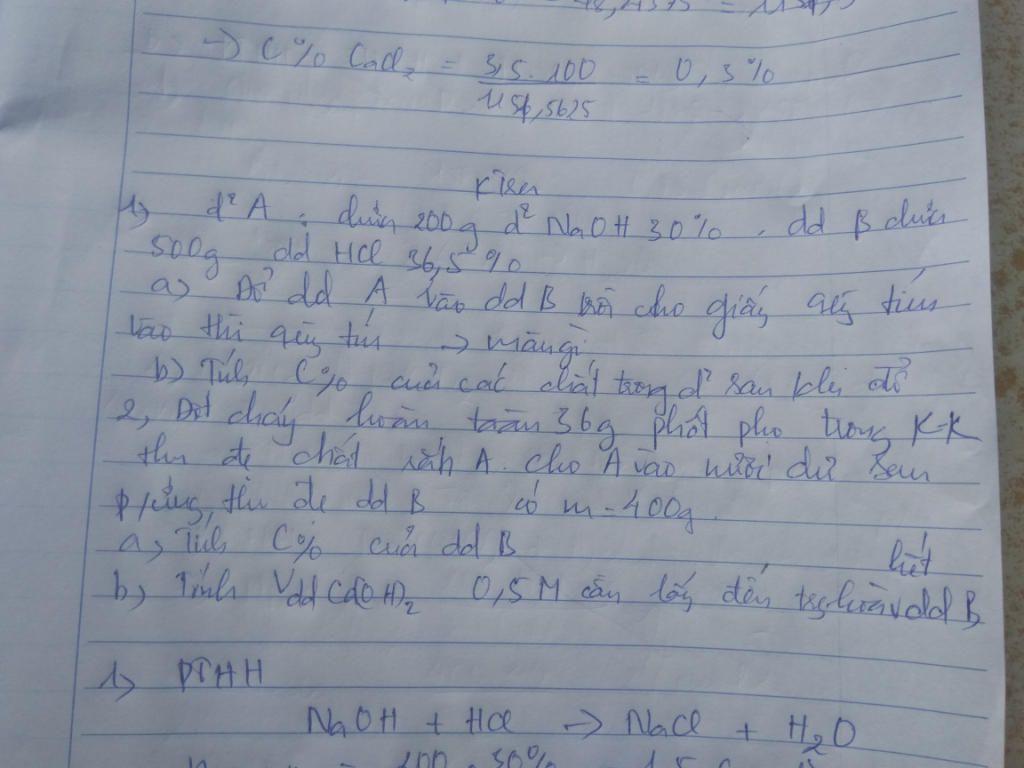 → C% CaCl₂ = 3,5.100 / 1156,5625 = 0,3%
1, d² A : chứa 200g d² NaOH 30%. dd B chứa
500g dd HCl 36,5%
a, Đổ dd A vào dd B rồi cho giấy quỳ tím
vào thì quỳ tím → màu gì
b) Tính C% của các chất trong d² sau khi đổ
2, Đốt cháy hoàn toàn 36g phốt pho trong K-K
thu đc chất rắn A. cho A vào nước dư sau
p/ứng, thu đc dd B có m = 400g.
a, Tính C% của dd B
hết
b, Tính Vdd Ca(OH)₂ 0,5M cần lấy đến dd B
1, PTHH
NaOH + HCl → NaCl + H₂O